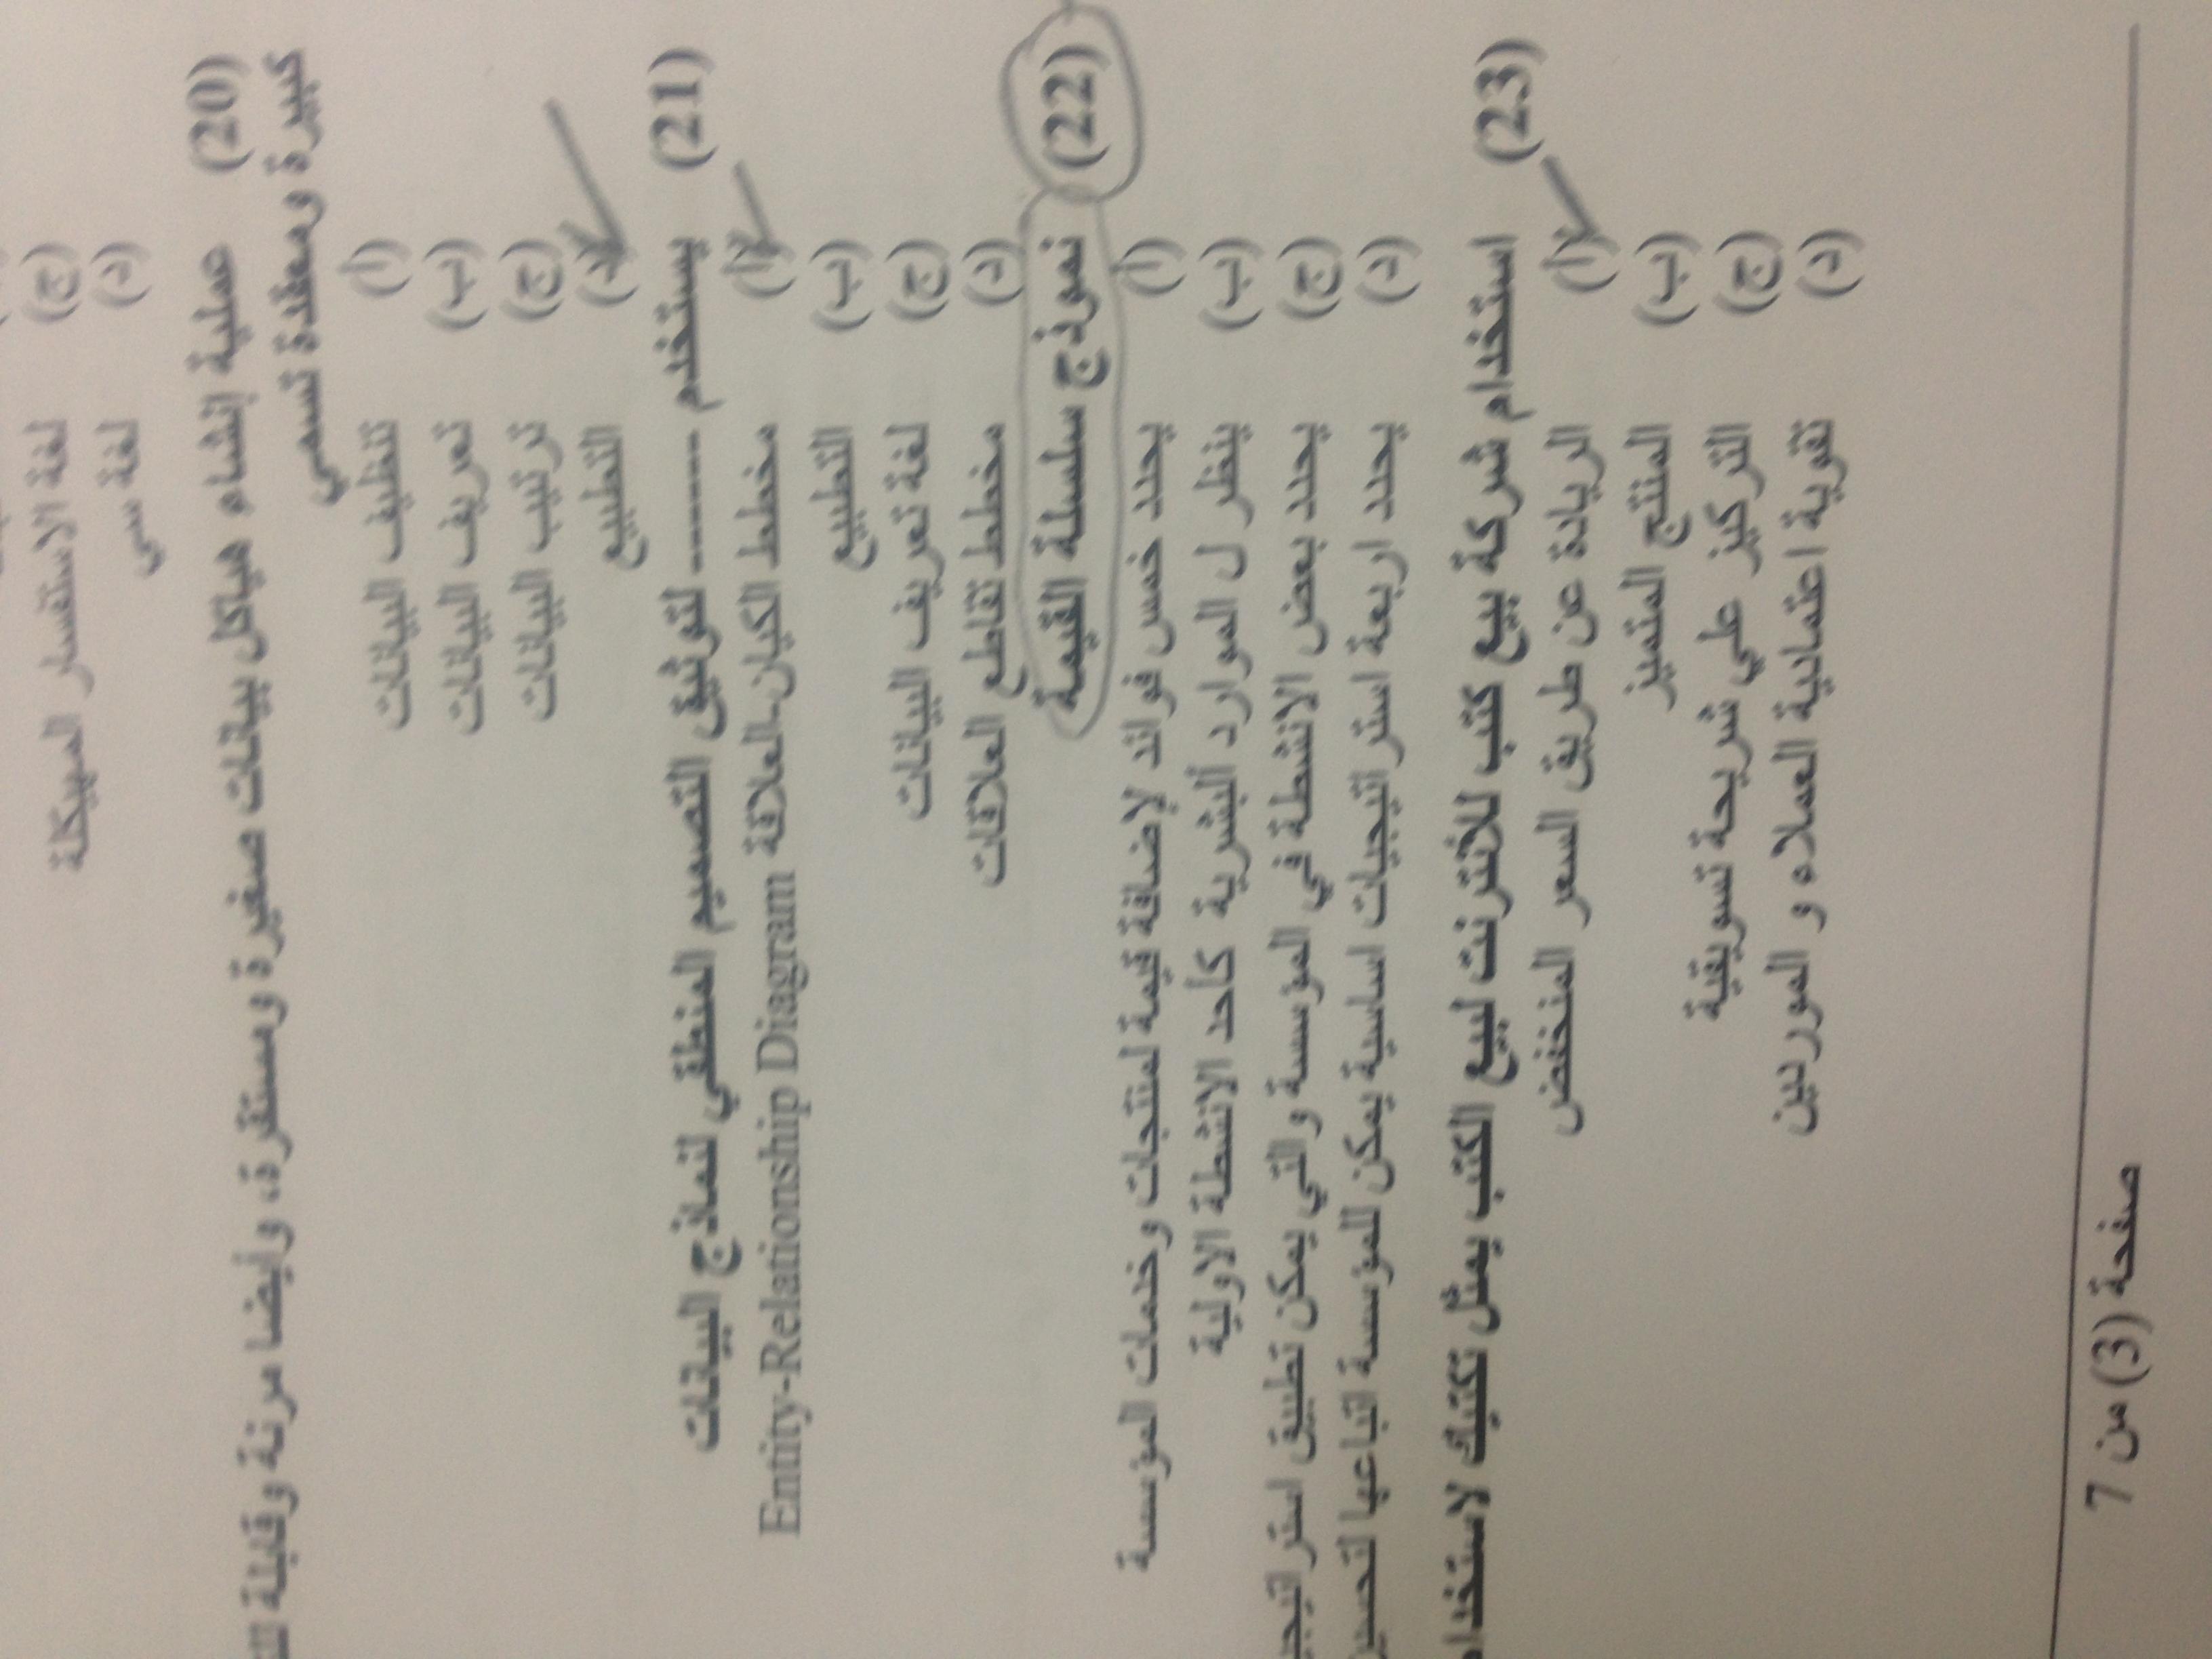 (ج) لغة الاستفسار المهيكلة
(د) لغة سي
(20) عملية إنشاء هياكل بيانات صغيرة ومستقرة، وأيضا مرنة وقابلة
كبيرة ومعقدة تسمي
(أ) تنظيف البيانات
(ب) تعريف البيانات
(ج) ترتيب البيانات
(د) التطبيع
(21) يستخدم ------ لتوثيق التصميم المنطقي لنماذج البيانات
(أ) مخطط الكيان-العلاقة Entity-Relationship Diagram
(ب) التطبيع
(ج) لغة تعريف البيانات
(د) مخطط تقاطع العلاقات
(22) نموذج سلسلة القيمة
(أ) يحدد خمس فوائد لإضافة قيمة لمنتجات وخدمات المؤسسة
(ب) ينظر ل الموارد ألبشرية كأحد الانشطة الاولية
(ج) يحدد بعض الانشطة في المؤسسة والتي يمكن تطبيق
(د) يحدد اربعة استراتيجيات اساسية يمكن للمؤسسة اتباعها
(23) استخدام شركة بيع كتب للأنترنت لبيع الكتب يمثل تكتيك لاستخدام
(أ) الريادة عن طريق السعر المنخفض
(ب) المنتج المتميز
(ج) التركيز علي شريحة تسويقية
(د) تقوية اعتمادية العملاء و الموردين
صفحة (3) من 7